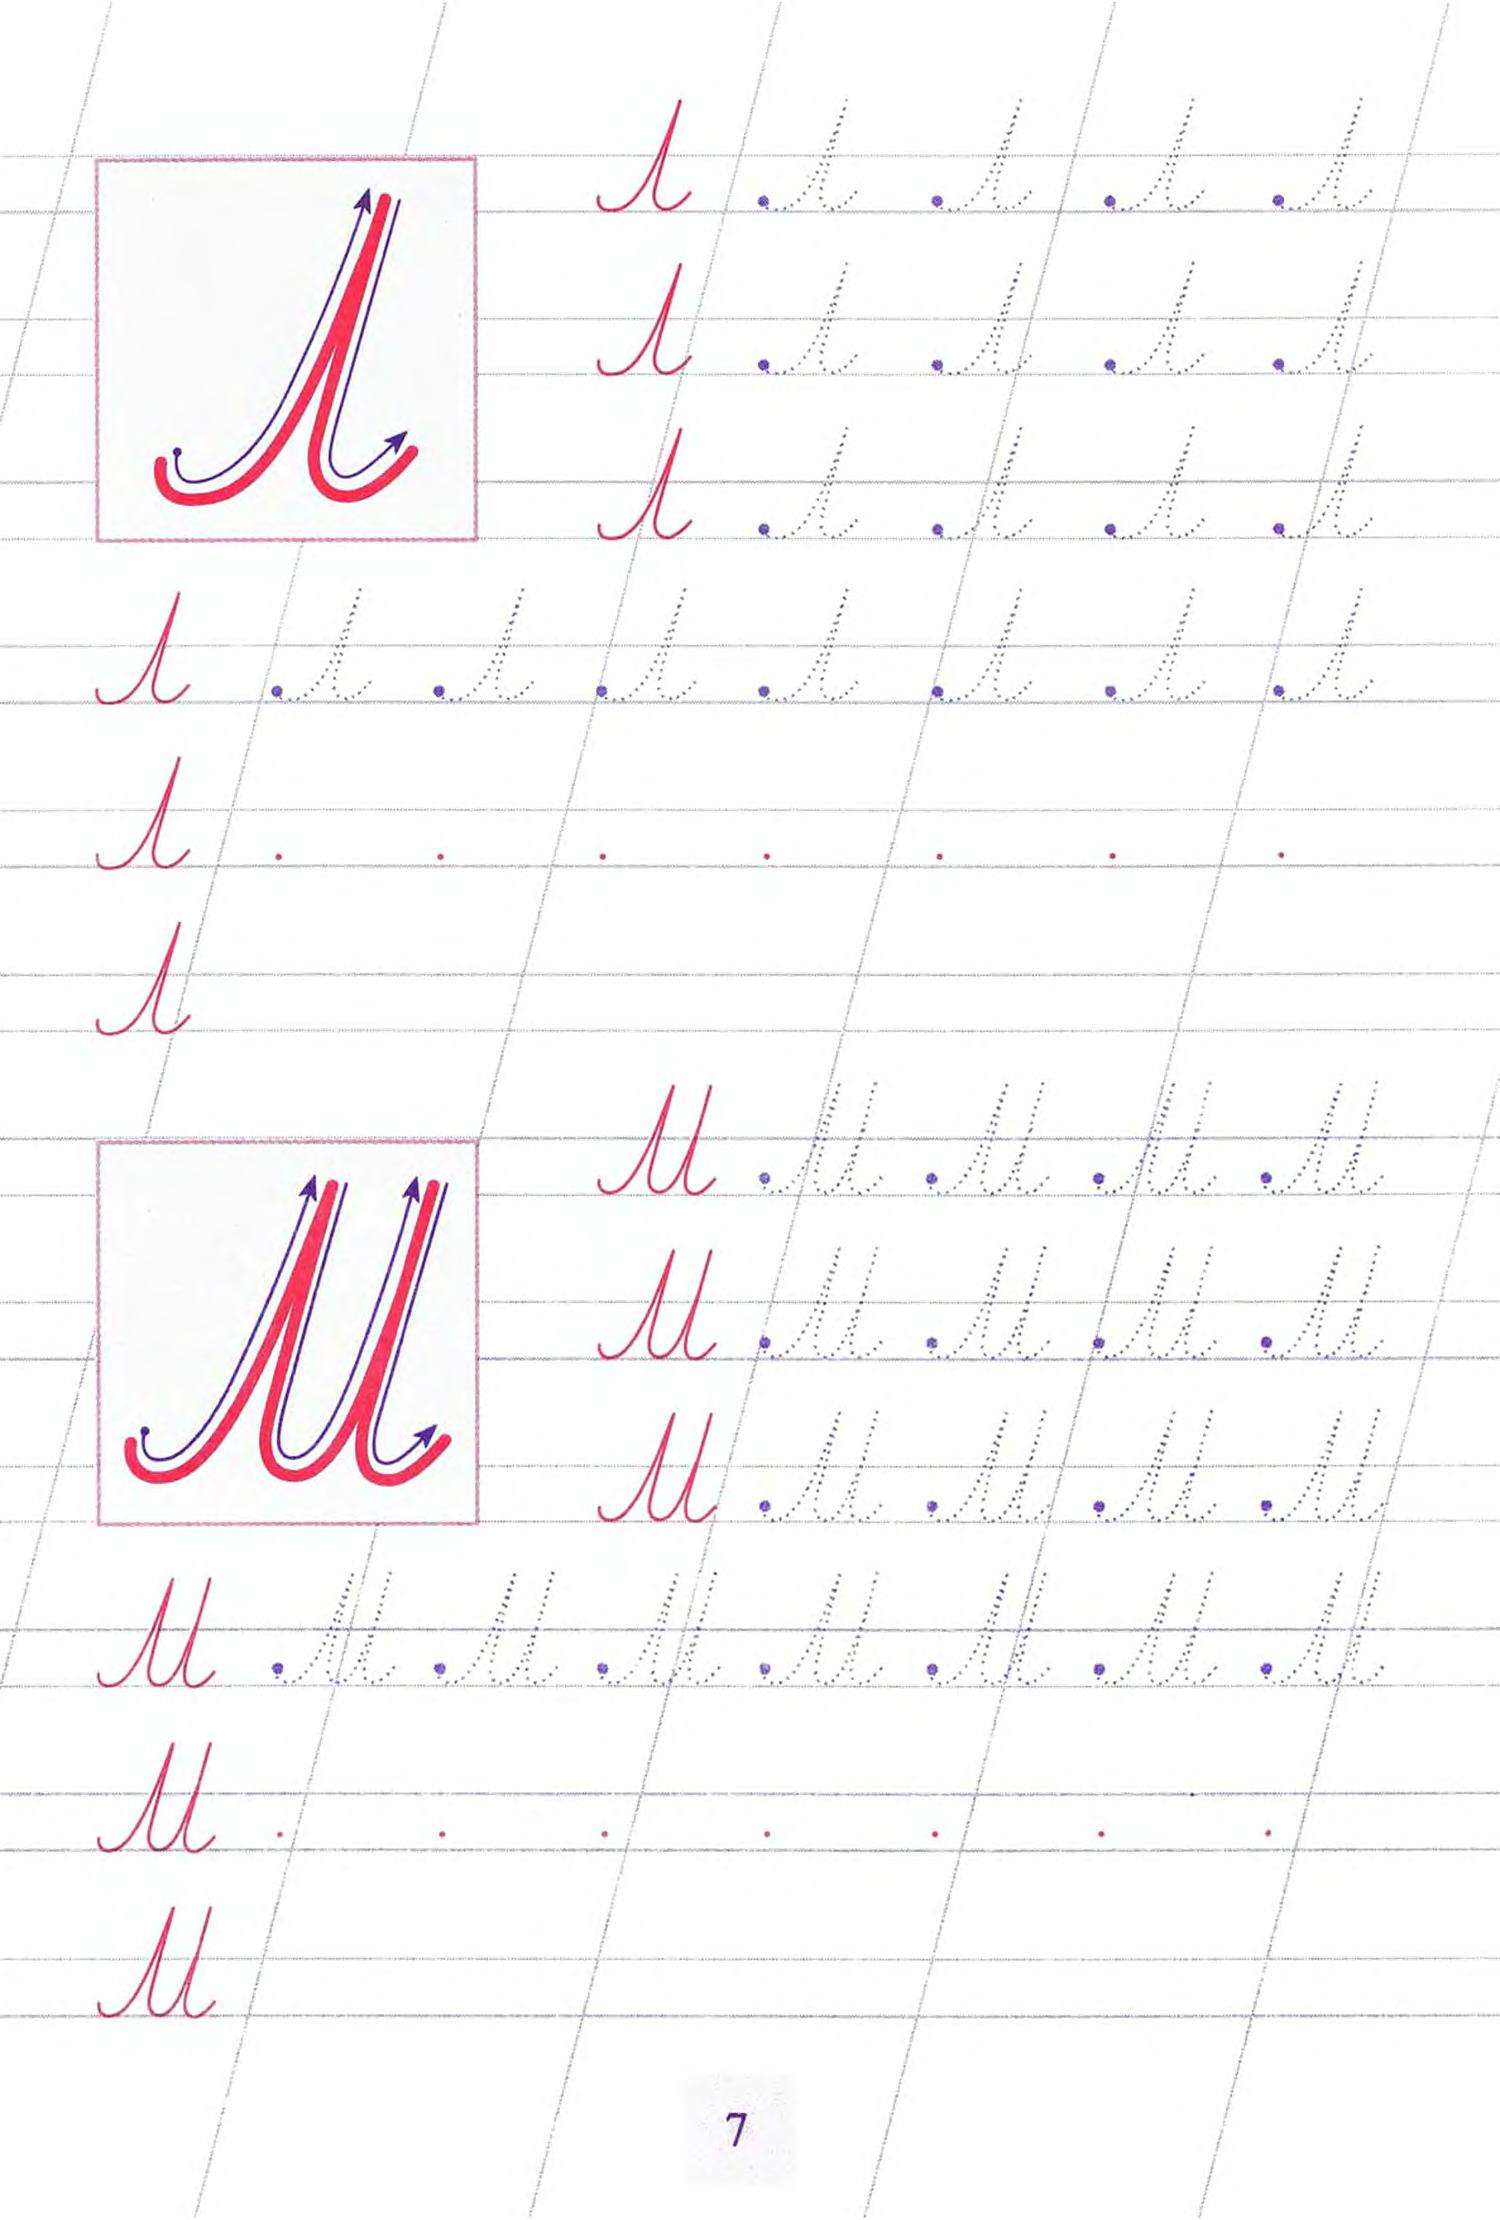 Л Л Л Л Л
Л Л Л Л Л
Л Л Л Л Л
Л
Л Л Л Л Л Л Л Л
Л
Л
М М М М М
М М М М М
М М М М М
М
М М М М М М М М
М
М
7